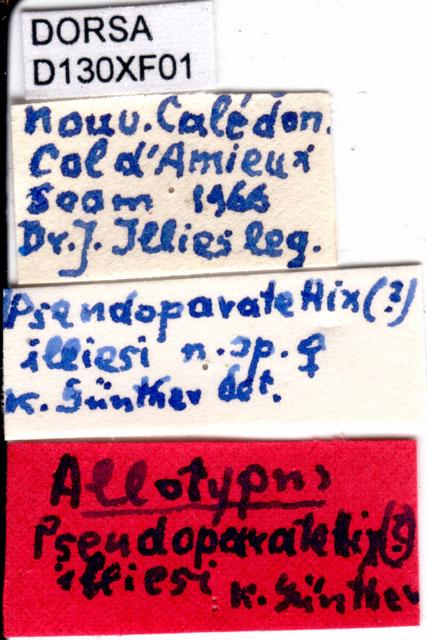 DORSA
D130XF01
Nouv. Calédon.
Col d'Amieux
800m 1966
Dr. J. Illies leg.
Pseudoparatettix(?)
illiesi n. sp. ♀
K. Günther det.
Allotypus
Pseudoparatettix(?)
illiesi
K. Günther